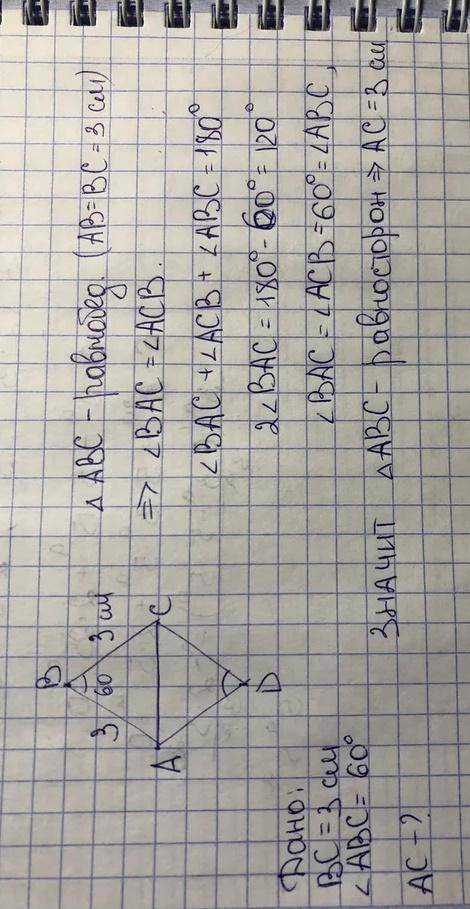 B
3
60
3 см
A
C
D
Дано:
BC = 3 см
∠ABC = 60°
AC - ?
△ABC - равнобед. (AB = BC = 3 см)
=> ∠BAC = ∠ACB.
∠BAC + ∠ACB + ∠ABC = 180°
2∠BAC = 180° - 60° = 120°
∠BAC = ∠ACB = 60° = ∠ABC,
ЗНАЧИТ △ABC - равносторон => AC = 3 см